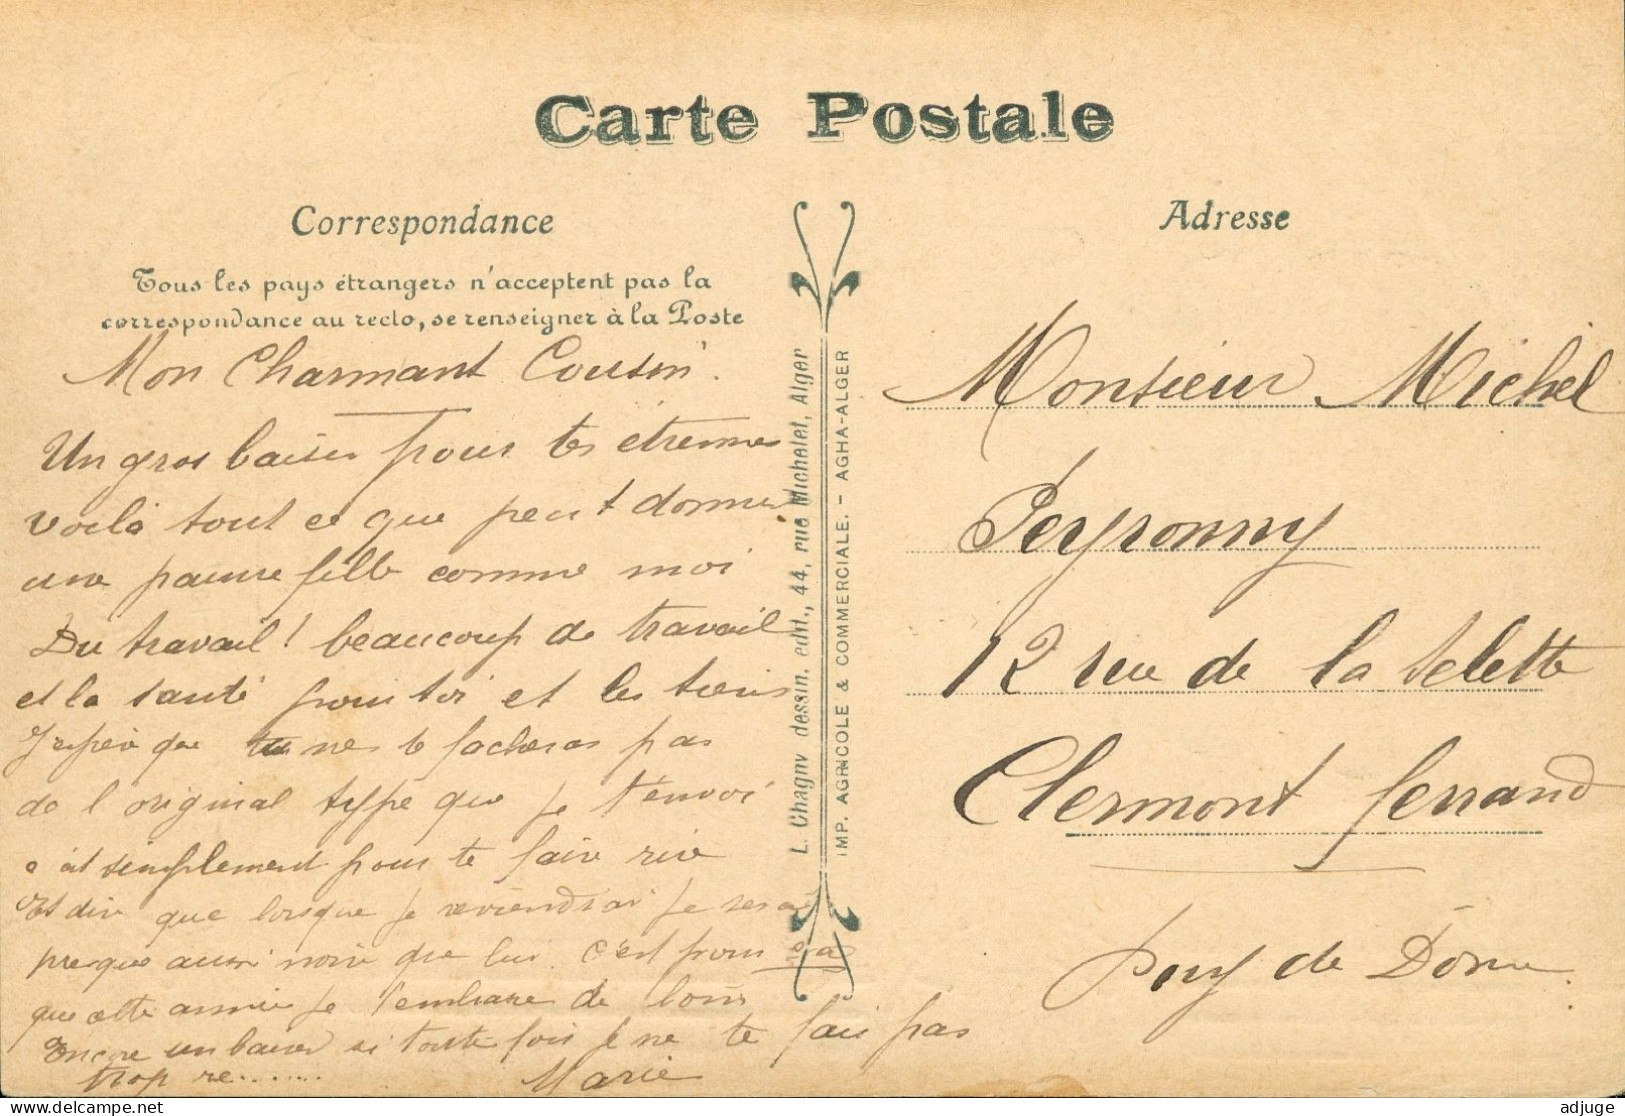 Carte Postale
Correspondance
Tous les pays étrangers n'acceptent pas la
correspondance au recto, se renseigner à la Poste
Mon Charmant Cousin.
Un gros baiser pour tes étrennes
voilà tout ce que peut donner
une pauvre fille comme moi
Du travail! beaucoup de travail
et la santé pour toi et les tiens
J'espère que tu ne te facheras pas
de l'original type que je t'envoi
simplement pour te faire rire
Et dire que lorsque je reviendrai je serai
presque aussi noire que lui. C'est pour ça
que cette année je t'embrasse de loin
Encore un baiser si toute fois je ne te fais pas
trop re.......
Marie
L. Chagny dessin. edit., 44, rue Michelet, Alger
IMP. AGRICOLE & COMMERCIALE. - AGHA-ALGER
Adresse
Monsieur Michel
Peyronny
12 rue de la Selette
Clermont ferrand
Puy de Dôme
adjuge